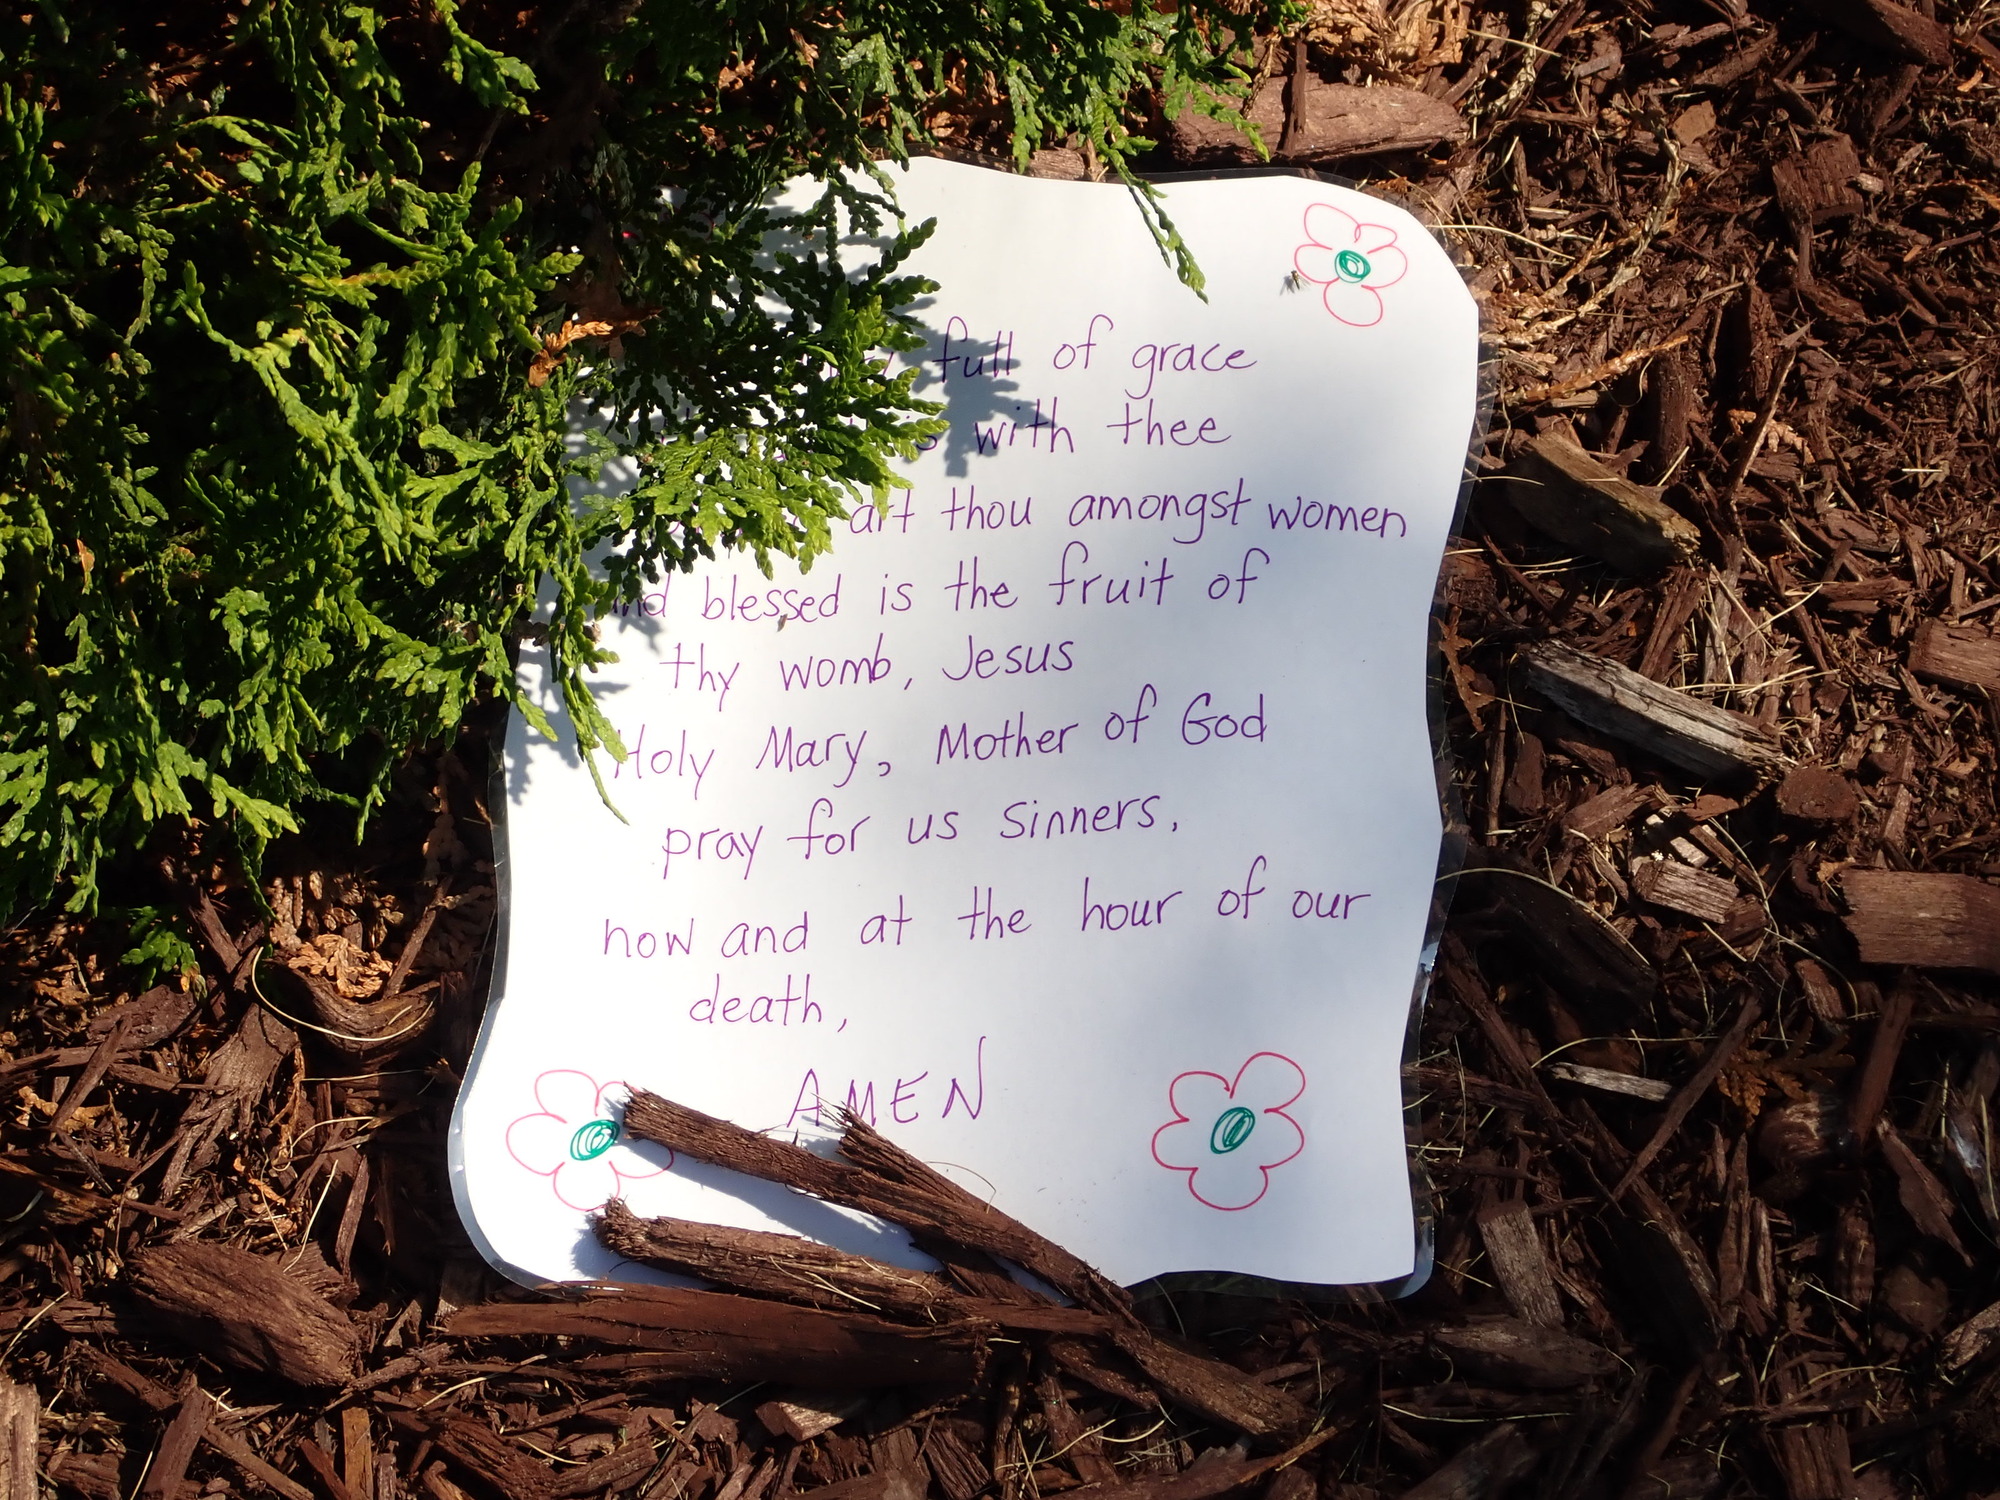 full of grace
is with thee
art thou amongst women
and blessed is the fruit of
thy womb, Jesus
Holy Mary, Mother of God
pray for us sinners,
now and at the hour of our
death,
AMEN